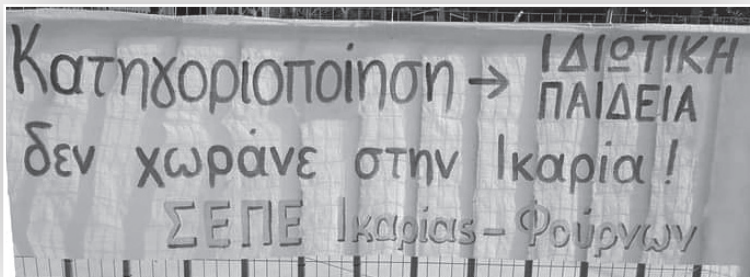 Κατηγοριοποίηση → ΙΔΙΩΤΙΚΗ
ΠΑΙΔΕΙΑ
δεν χωράνε στην Ικαρία!
ΣΕΠΕ Ικαρίας - Φούρνων